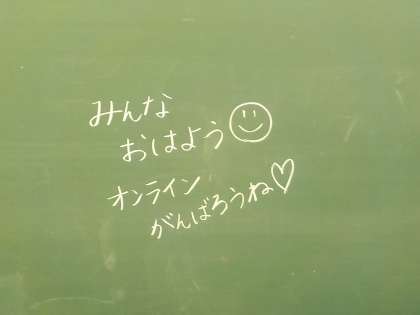 みんな
おはよう☺
オンライン
がんばろうね♡